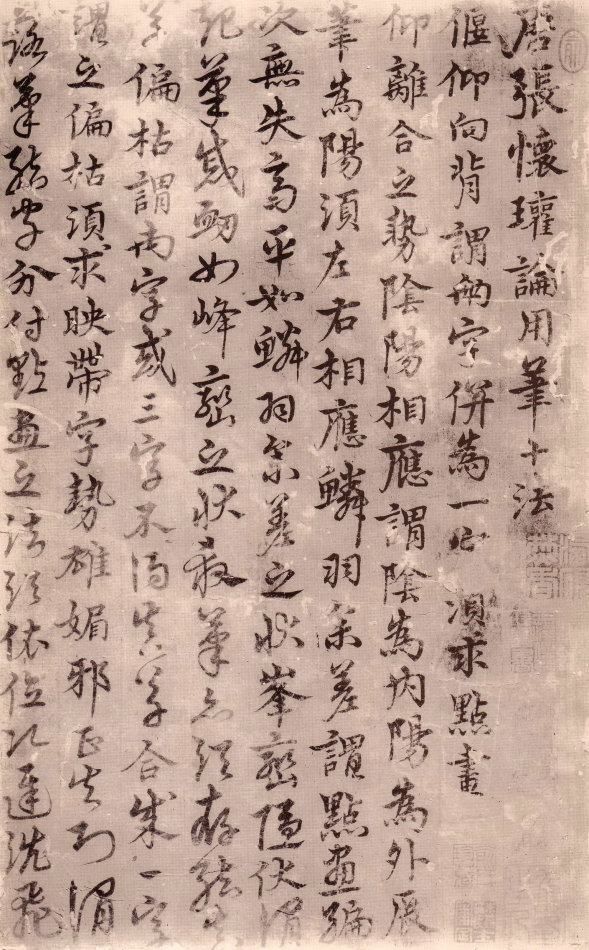 唐張懷瓘論用筆十法
偃仰向背謂兩字併為一字須求點畫
仰離合之勢陰陽相應謂陰為內陽為外展
筆為陽須左右相應鱗羽參差謂點畫編
次無失高平如鱗羽參差之狀峯巒隱伏謂
起筆蹙衄如峰巒之狀殺筆亦須存結真
草偏枯謂兩字或三字不得真草合成一字
謂之偏枯須求映帶字勢雄媚邪正失則謂
落筆結字分付點畫之法須依位次遲飛